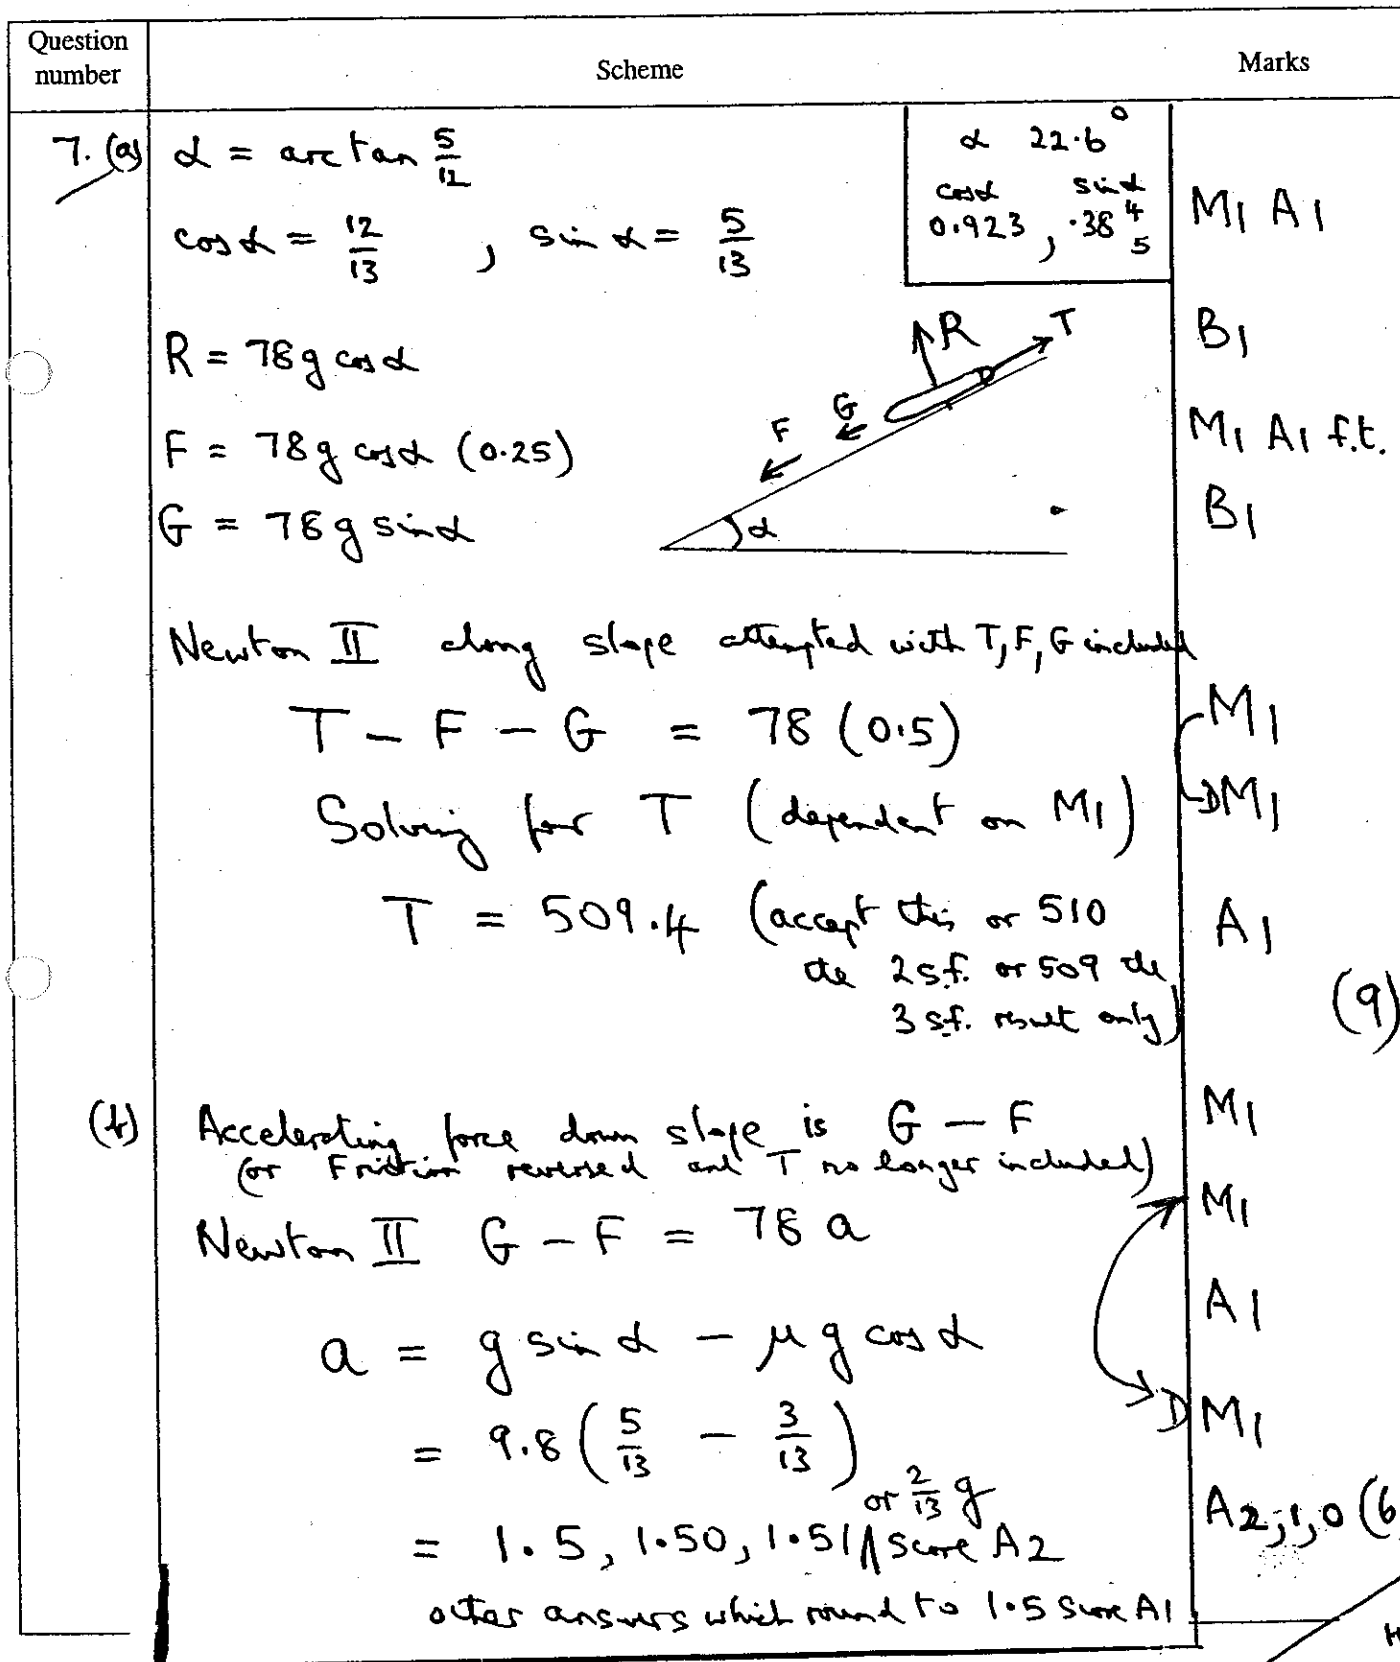 Question number
Scheme
Marks
7. (a) α = arctan 5/12
α 22.6°
cosα sinα
0.923, .38 4/5
M1 A1
cosα = 12/13 , sinα = 5/13
R = 78g cosα
B1
F = 78g cosα (0.25)
M1 A1 f.t.
G = 78g sinα
B1
R
T
G
F
α
Newton II along slope attempted with T, F, G included
T - F - G = 78 (0.5)
M1
Solving for T (dependent on M1)
DM1
T = 509.4 (accept this or 510
the 2 s.f. or 509 the
3 s.f. result only)
A1
(9)
(b) Accelerating force down slope is G - F
(or Friction reversed and T no longer included)
M1
Newton II G - F = 78a
M1
A1
a = g sinα - μg cosα
= 9.8 (5/13 - 3/13)
DM1
or 2/13 g
= 1.5, 1.50, 1.51 ∧ score A2
A2,1,0 (6
other answers which round to 1.5 score A1